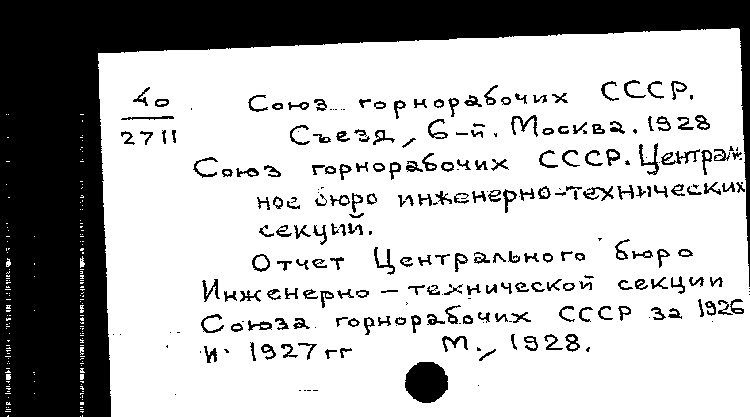 40
2711
Союз горнорабочих СССР.
Съезд, 6-й. Москва. 1928
Союз горнорабочих СССР. Централь
ное бюро инженерно-технических
секций.
Отчет Центрального бюро
Инженерно-технической секции
Союза горнорабочих СССР за 1926
и 1927 гг М., 1928.